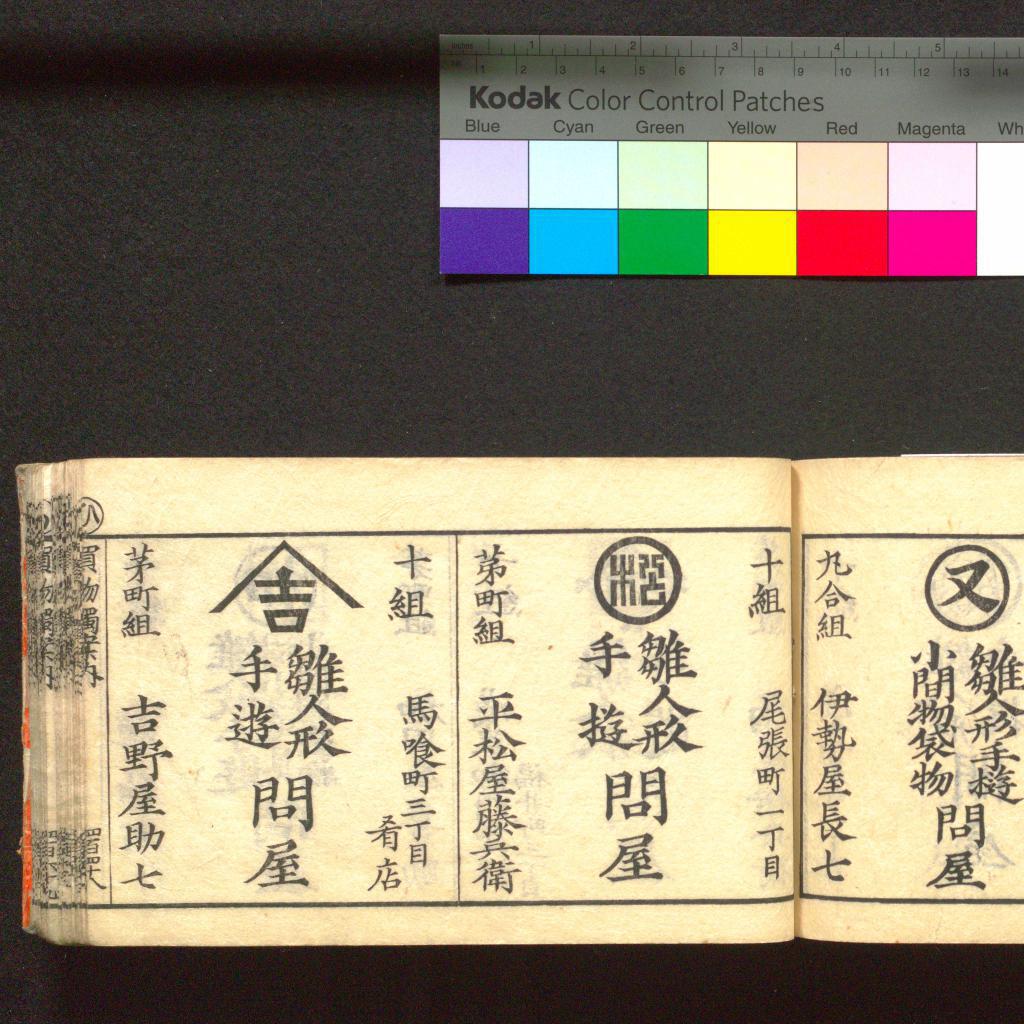 inches 1 2 3 4 5
cm 1 2 3 4 5 6 7 8 9 10 11 12 13 14
Kodak Color Control Patches
Blue Cyan Green Yellow Red Magenta Wh
又
雛人形手遊
小間物袋物
問屋
九合組 伊勢屋長七
十組 尾張町一丁目
松
雛人形
手遊
問屋
茅町組 平松屋藤兵衛
十組 馬喰町三丁目
肴店
吉
雛人形
手遊
問屋
茅町組 吉野屋助七
八
買物獨案内